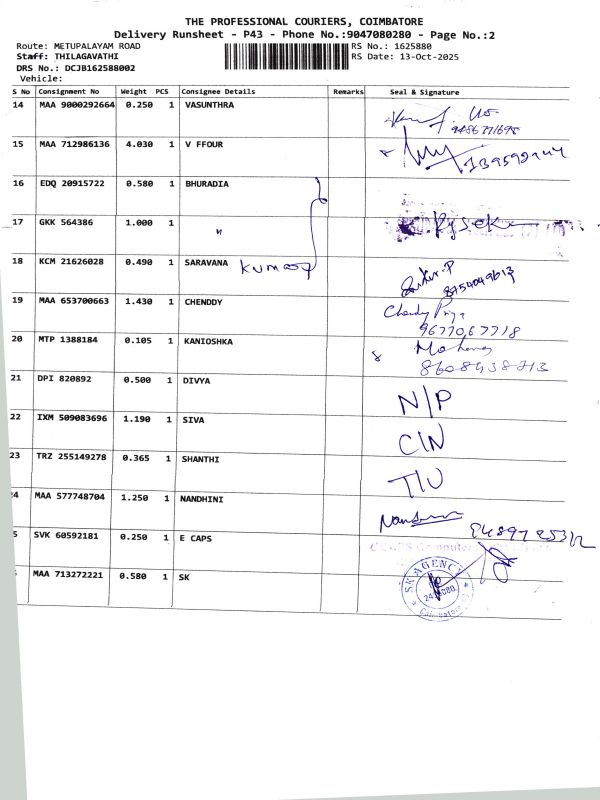 THE PROFESSIONAL COURIERS, COIMBATORE
Delivery Runsheet - P43 - Phone No.:9047080280 - Page No.:2
Route: METUPALAYAM ROAD RS No.: 1625880
Staff: THILAGAVATHI RS Date: 13-Oct-2025
DRS No.: DCJB162588002
Vehicle:
S No Consignment No Weight PCS Consignee Details Remarks Seal & Signature
14 MAA 9000292664 0.250 1 VASUNTHRA
15 MAA 712986136 4.030 1 V FFOUR
16 EDQ 20915722 0.580 1 BHURADIA
17 GKK 564386 1.000 1 "
18 KCM 21626028 0.490 1 SARAVANA Kumar
8754049613
19 MAA 653700663 1.430 1 CHENDDY
Chendy Priya
9677067718
20 MTP 1388184 0.105 1 KANIOSHKA
8608438713
21 DPI 820892 0.500 1 DIVYA N/P
22 IXM 509083696 1.190 1 SIVA C/N
23 TRZ 255149278 0.365 1 SHANTHI T/U
24 MAA 577748704 1.250 1 NANDHINI
5 SVK 60592181 0.250 1 E CAPS
MAA 713272221 0.580 1 SK SK AGENCY